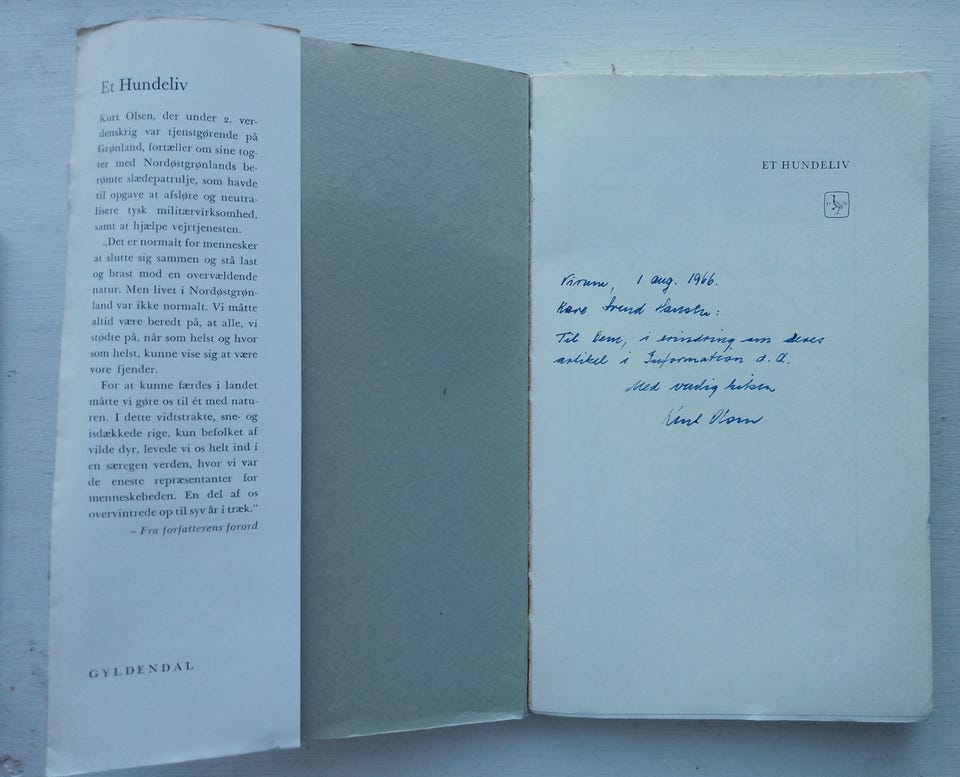 Et Hundeliv
Kurt Olsen, der under 2. ver-
denskrig var tjenstgørende på
Grønland, fortæller om sine tog-
ter med Nordøstgrønlands be-
rømte slædepatrulje, som havde
til opgave at afsløre og neutra-
lisere tysk militærvirksomhed,
samt at hjælpe vejrtjenesten.
„Det er normalt for mennesker
at slutte sig sammen og stå last
og brast mod en overvældende
natur. Men livet i Nordøstgrøn-
land var ikke normalt. Vi måtte
altid være beredt på, at alle, vi
stødte på, når som helst og hvor
som helst, kunne vise sig at være
vore fjender.
For at kunne færdes i landet
måtte vi gøre os til ét med natu-
ren. I dette vidtstrakte, sne- og
isdækkede rige, kun befolket af
vilde dyr, levede vi os helt ind i
en særegen verden, hvor vi var
de eneste repræsentanter for
menneskeheden. En del af os
overvintrede op til syv år i træk.”
– Fra forfatterens forord
GYLDENDAL
ET HUNDELIV
Virum, 1 aug. 1966.
Kære Svend Hansen:
Til Dem, i erindring om deres
artikel i Information d.d.
Med venlig hilsen
Kurt Olsen